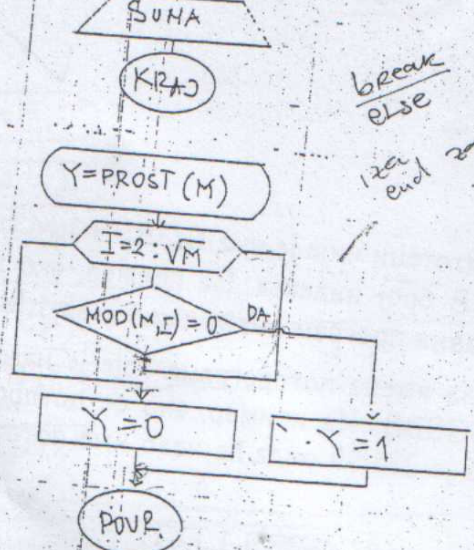 SUMA
KRAJ
break
else
iza
end
Y=PROST (M)
I=2:√M
MOD(M,I)=0
DA
Y=0
Y=1
POVR.